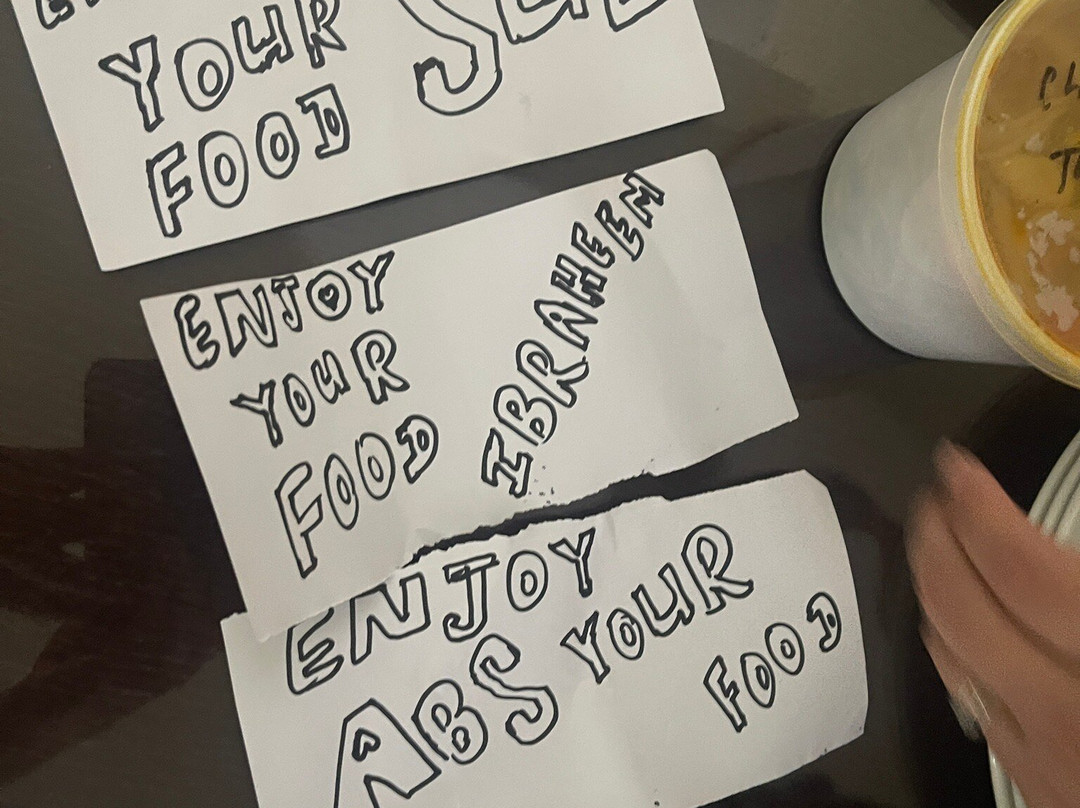 YOUR
FOOD
ENJOY
YOUR
FOOD
IBRAHEEM
ENJOY
ABS YOUR
FOOD